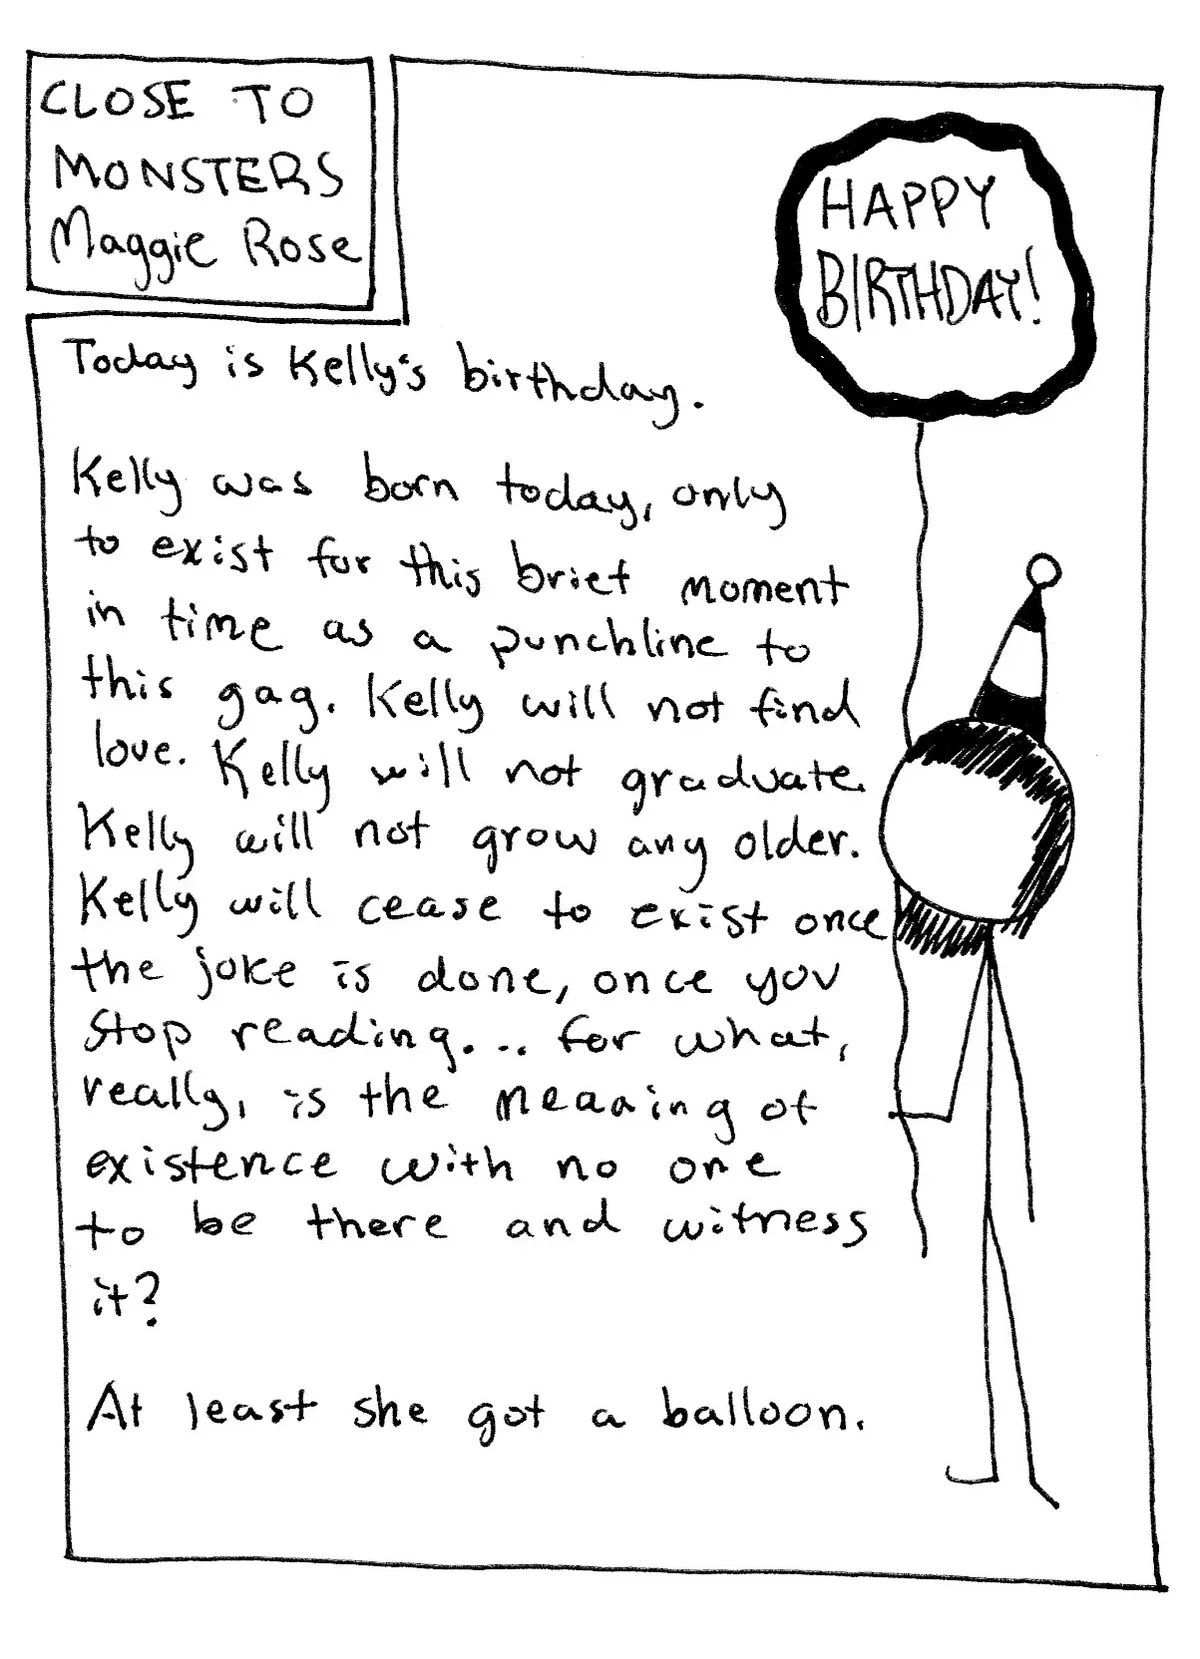 CLOSE TO
MONSTERS
Maggie Rose
HAPPY
BIRTHDAY!
Today is Kelly's birthday.
Kelly was born today, only
to exist for this brief moment
in time as a punchline to
this gag. Kelly will not find
love. Kelly will not graduate.
Kelly will not grow any older.
Kelly will cease to exist once
the joke is done, once you
stop reading... for what,
really, is the meaning of
existence with no one
to be there and witness
it?
At least she got a balloon.